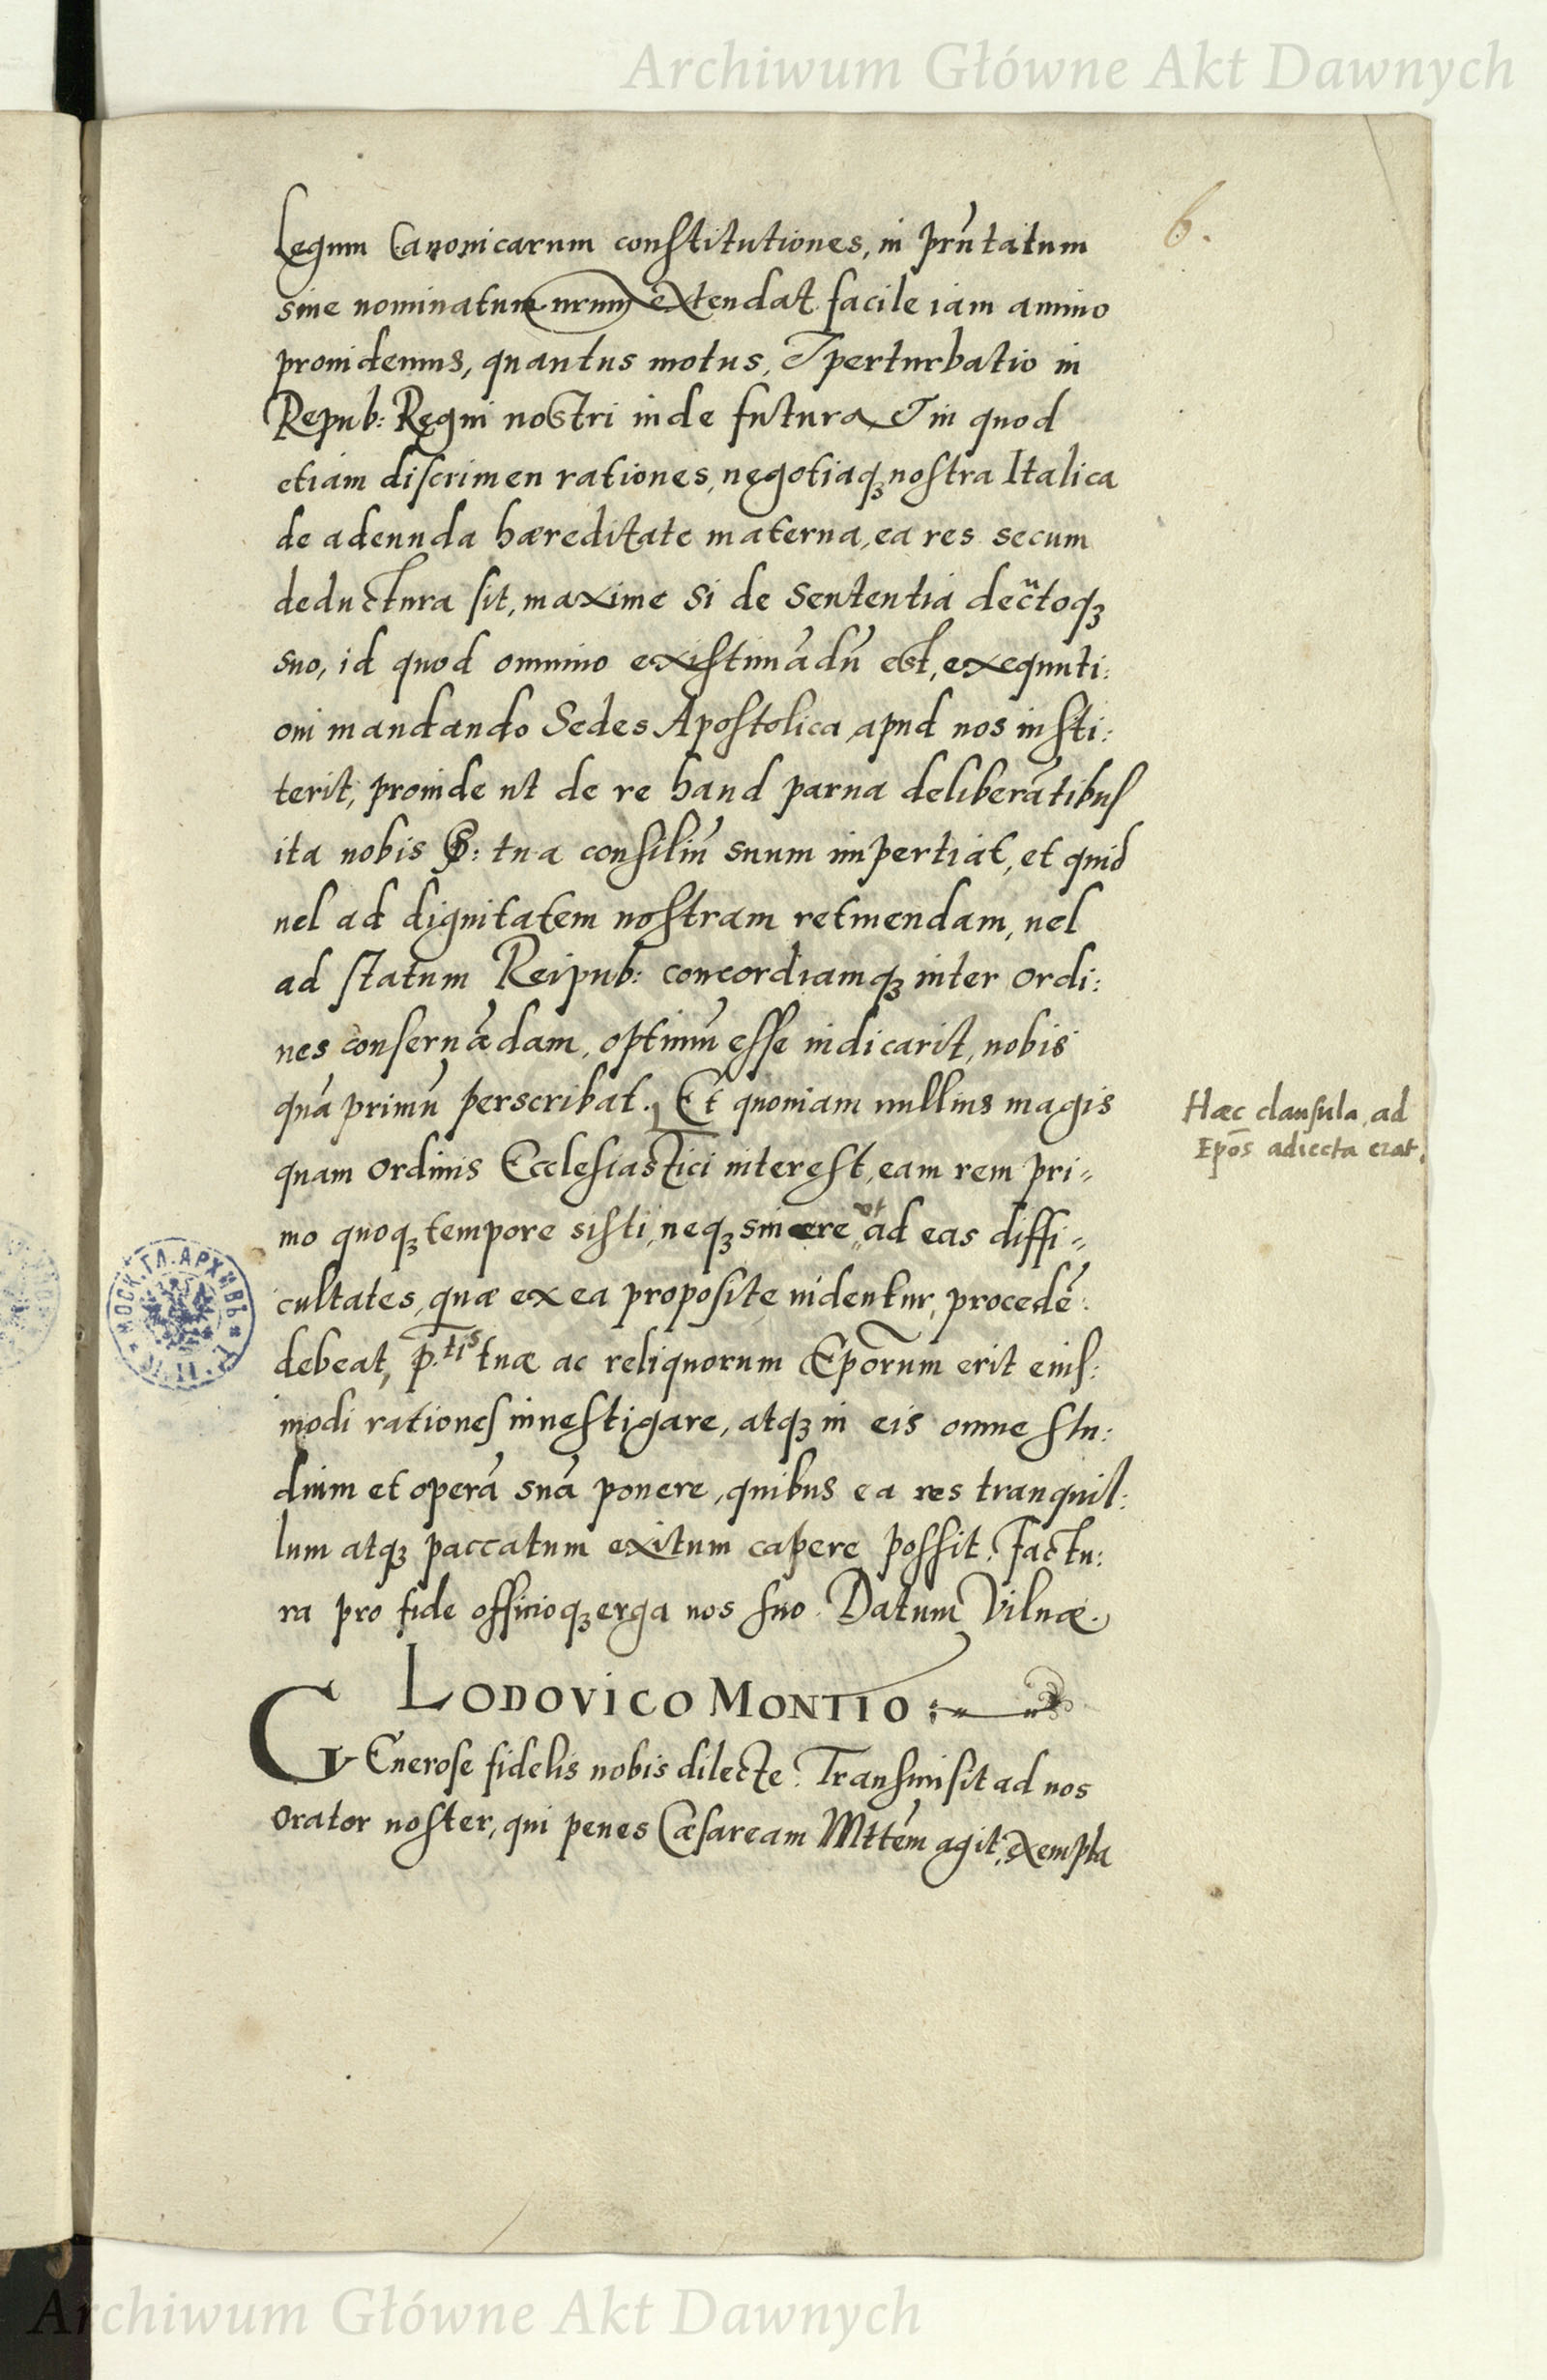 Archiwum Główne Akt Dawnych
6.
Legum Canonicarum constitutiones, in prñtatum
siue nominatum nrum extendat facile iam animo
prouidemus, quantus motus, & perturbatio in
Repub: Regni nostri inde futura & in quod
etiam discrimen rationes, negotiaqꝫ nostra Italica
de adeunda hæreditate materna, ea res secum
deductura sit, maxime si de sententia dec̃toqꝫ
suo, id quod omnino existimãdũ est, exequuti:
oni mandando Sedes Apostolica apud nos insti:
terit, proinde ut de re haud parua deliberãtibus
ita nobis P: tua consiliũ suum impertiat, et quid
uel ad dignitatem nostram retinendam, uel
ad statum Reipub: concordiamqꝫ inter ordi:
nes conseruãdam, optimũ esse iudicarit, nobis
quã primũ perscribat. Et quoniam nullius magis
quam ordinis Ecclesiastici interest, eam rem pri„
mo quoqꝫ tempore sisti, neqꝫ sincere ut ad eas diffi„
cultates, quæ ex ea propositę uidentur, procedẽ:
debeat, p.tis tuæ ac reliquorum Ep̃orum erit eius:
modi rationes inuestigare, atqꝫ in eis omne stu:
dium et operã suã ponere, quibus ea res tranquil:
lum atqꝫ paccatum exitum capere possit. Factu:
ra pro fide officioqꝫ erga nos suo. Datum Vilnæ.
Hæc clausula, ad
Ep̃os adiecta erat.
МОСК. ГЛ. АРХИВЪ
LODOVICO MONTIO:
GEnerose fidelis nobis dilecte. Transmisit ad nos
orator noster, qui penes Cæsaream Mttẽm agit, exempla
Archiwum Główne Akt Dawnych